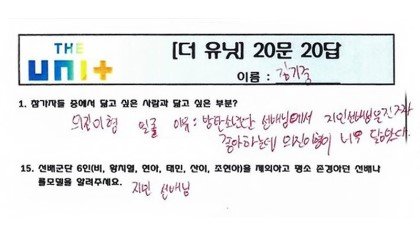 THE
UNI+
[더 유닛] 20문 20답
이름 : 김기중
1. 참가자들 중에서 닮고 싶은 사람과 닮고 싶은 부분?
의진이형 얼굴 이유 : 방탄소년단 선배님에서 지민선배님을 진짜
좋아하는데 의진이형이 너무 닮았다
15. 선배군단 6인(비, 황치열, 현아, 태민, 산이, 조현아)을 제외하고 평소 존경하던 선배나
롤모델을 알려주세요.
지민 선배님